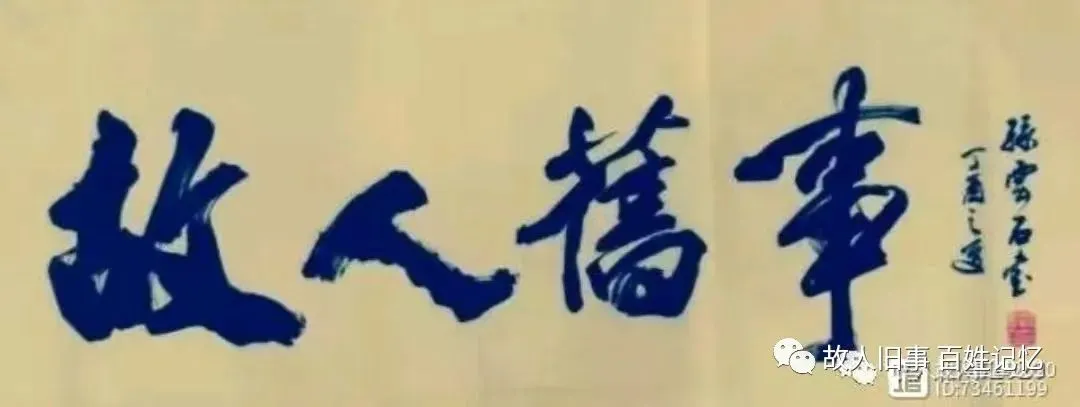 故人舊事
丁酉之夏
孫雲石書
故人旧事 百姓记忆
ID:73461199